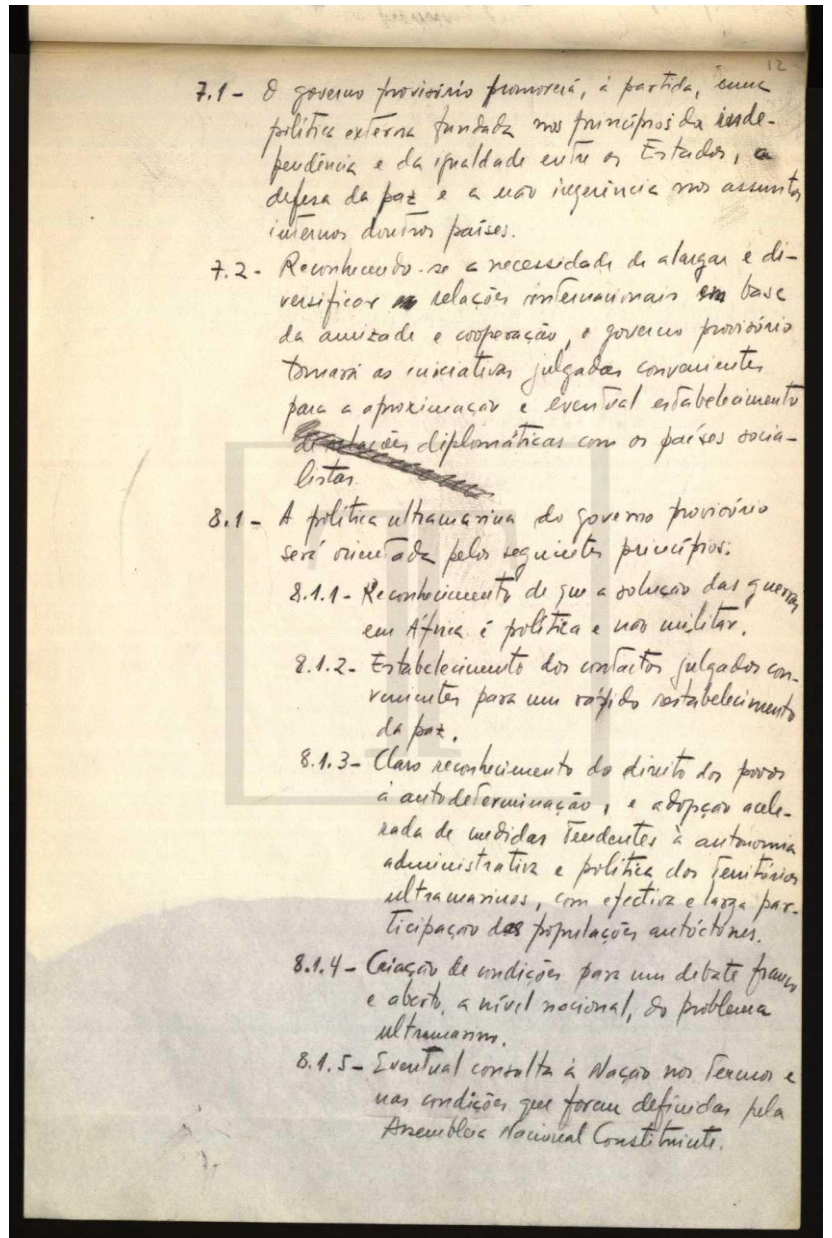 12
7.1 - O governo provisório promoverá, à partida, uma
política externa fundada nos princípios da inde-
pendência e da igualdade entre os Estados, a
defesa da paz e a não ingerência nos assuntos
internos doutros países.
7.2 - Reconhecendo-se a necessidade de alargar e di-
versificar as relações internacionais em base
da amizade e cooperação, o governo provisório
tomará as iniciativas julgadas convenientes
para a aproximação e eventual estabelecimento
de relações diplomáticas com os países socia-
listas.
8.1 - A política ultramarina do governo provisório
será orientada pelos seguintes princípios:
8.1.1 - Reconhecimento de que a solução das guerras
em África é política e não militar.
8.1.2 - Estabelecimento dos contactos julgados con-
venientes para um rápido restabelecimento
da paz.
8.1.3 - Claro reconhecimento do direito dos povos
à autodeterminação, e adopção acele-
rada de medidas tendentes à autonomia
administrativa e política dos territórios
ultramarinos, com efectiva e larga par-
ticipação das populações autóctones.
8.1.4 - Criação de condições para um debate franco
e aberto, a nível nacional, do problema
ultramarino.
8.1.5 - Eventual consulta à Nação nos termos e
nas condições que forem definidas pela
Assembleia Nacional Constituinte.